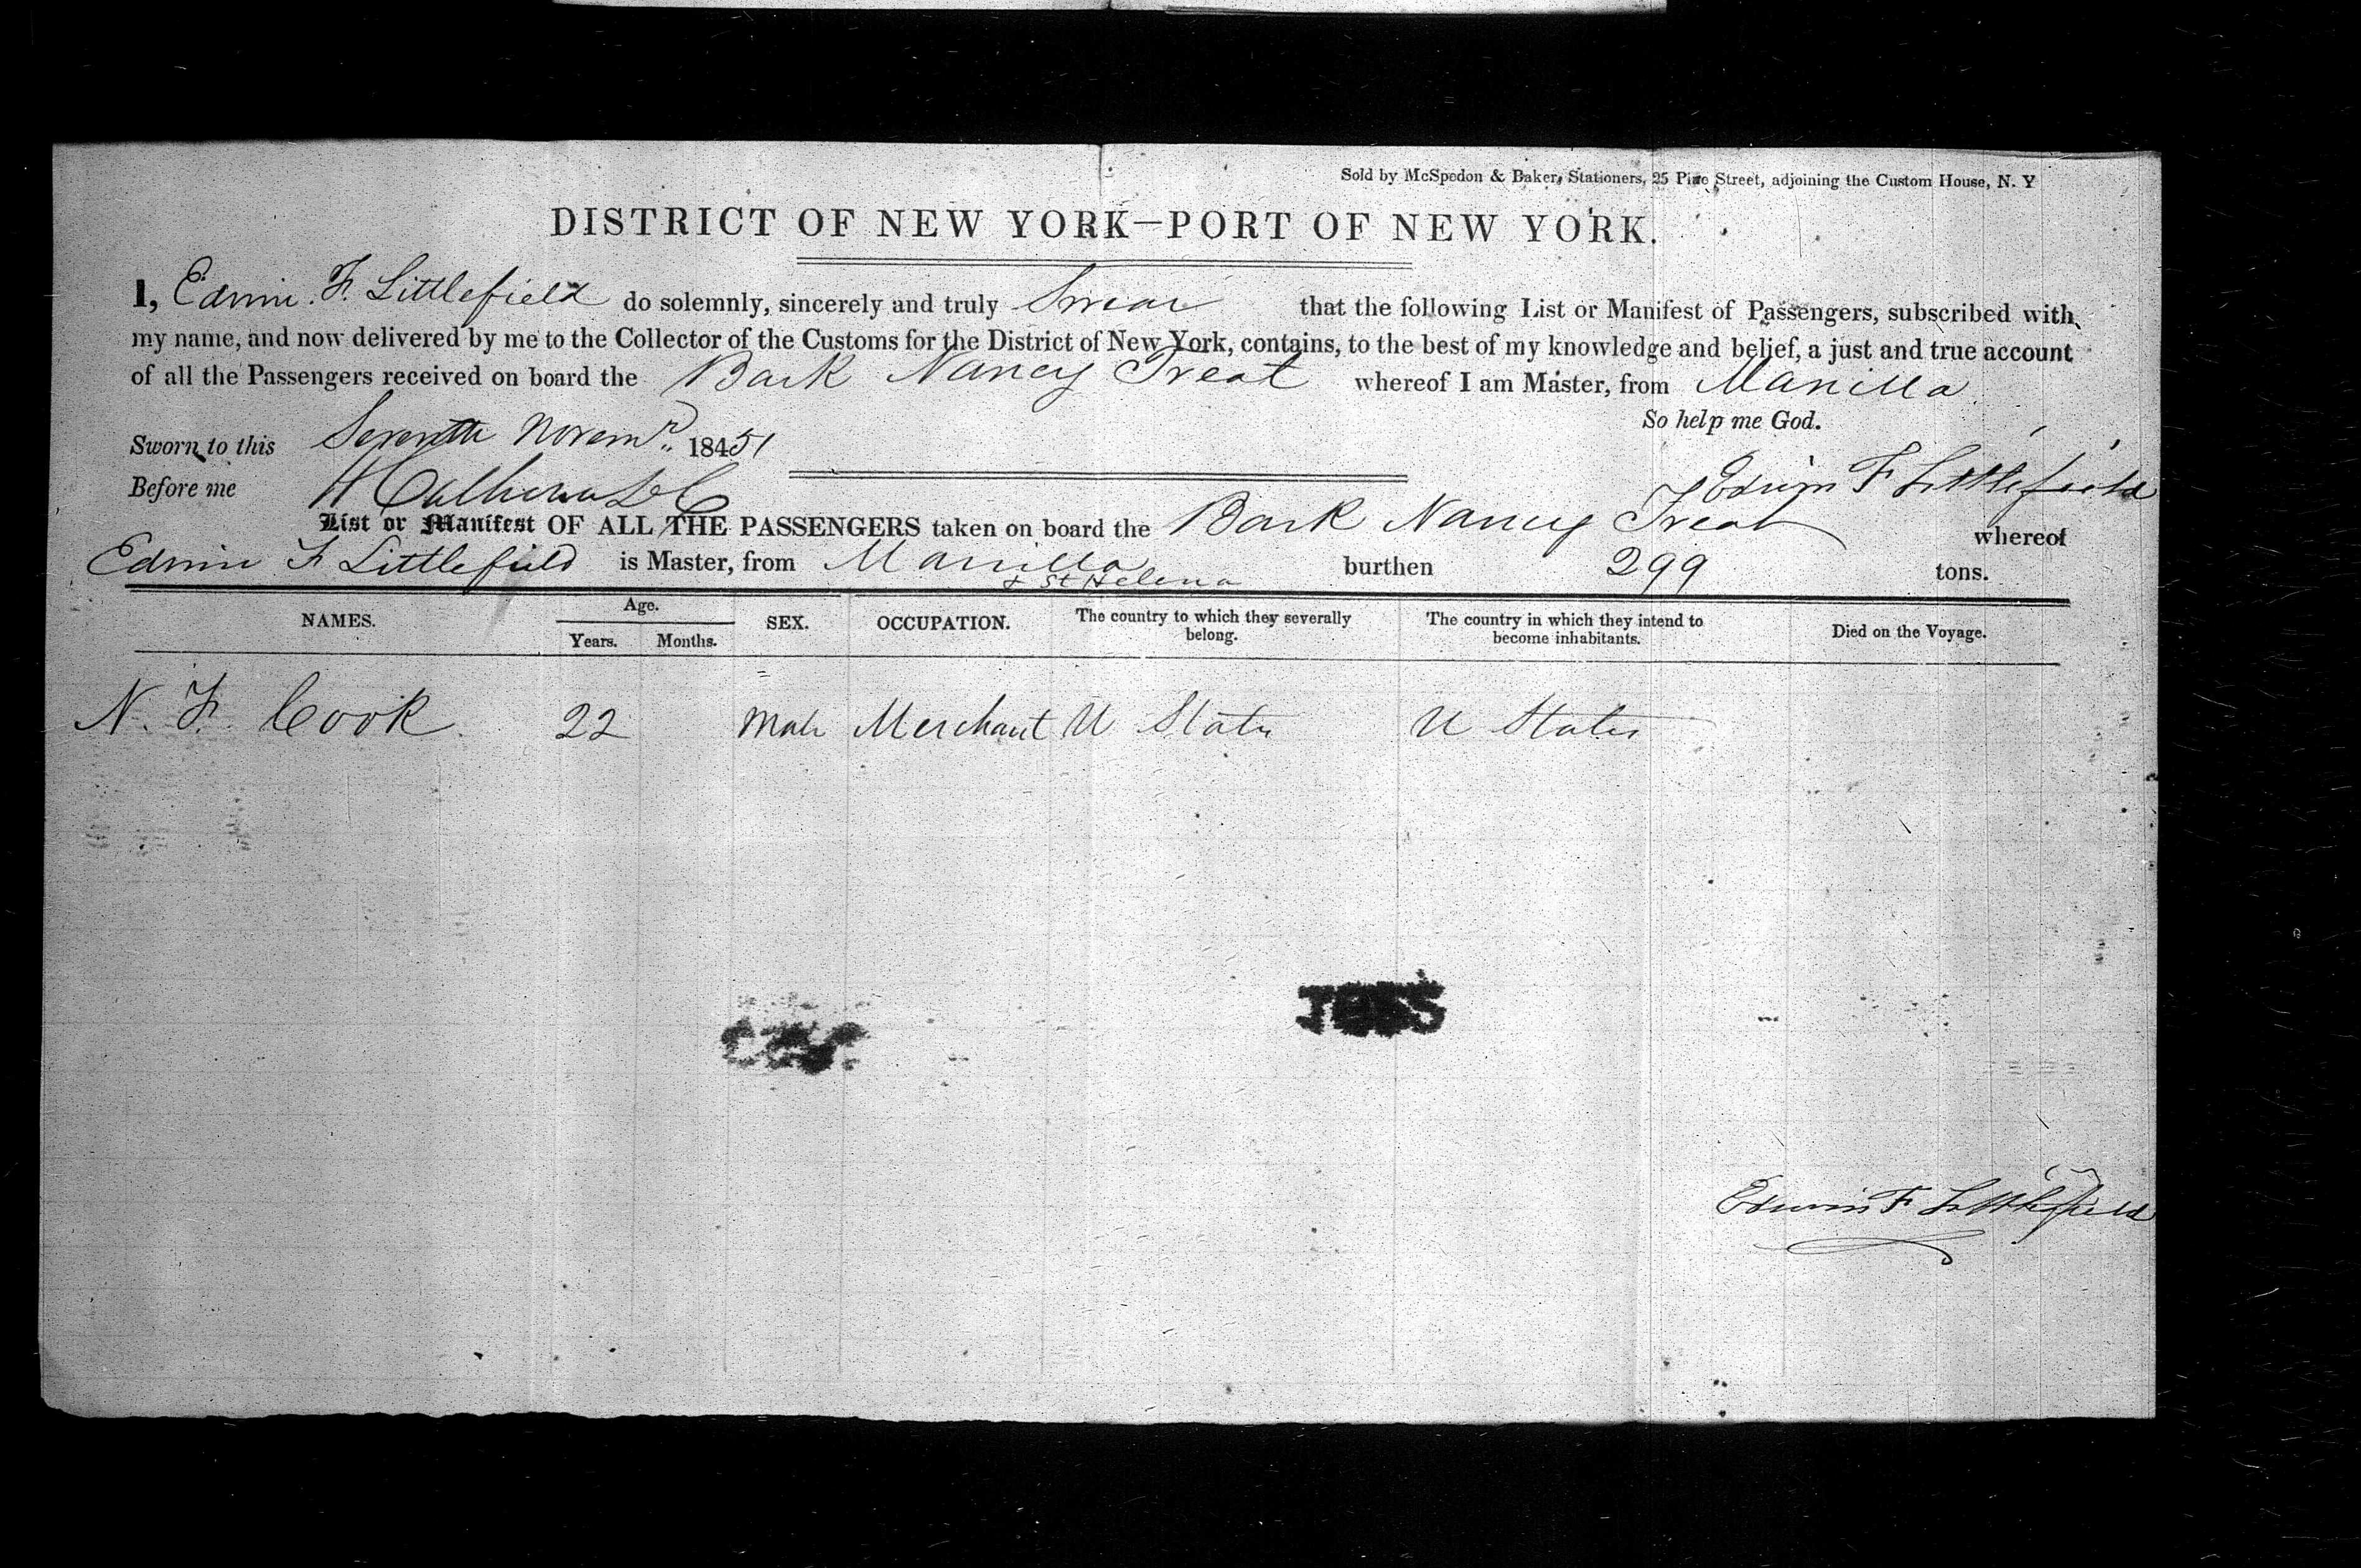 Sold by McSpedon & Baker, Stationers, 25 Pine Street, adjoining the Custom House, N. Y
DISTRICT OF NEW YORK—PORT OF NEW YORK.
I, Edwin. F. Littlefield do solemnly, sincerely and truly Swear that the following List or Manifest of Passengers, subscribed with
my name, and now delivered by me to the Collector of the Customs for the District of New York, contains, to the best of my knowledge and belief, a just and true account
of all the Passengers received on board the Bark Nancy Treat whereof I am Master, from Manilla
So help me God.
Sworn to this Seventh Novemr. 18451
Before me Edwin F Littlefield
List or Manifest OF ALL THE PASSENGERS taken on board the Bark Nancy Treat whereof
Edwin F Littlefield is Master, from Manilla burthen 299 tons.
& St Helena
NAMES. Age. SEX. OCCUPATION. The country to which they severally belong. The country in which they intend to become inhabitants. Died on the Voyage.
Years. Months.
N. F. Cook. 22 Male Merchant U States U States
Edwin F Littlefield